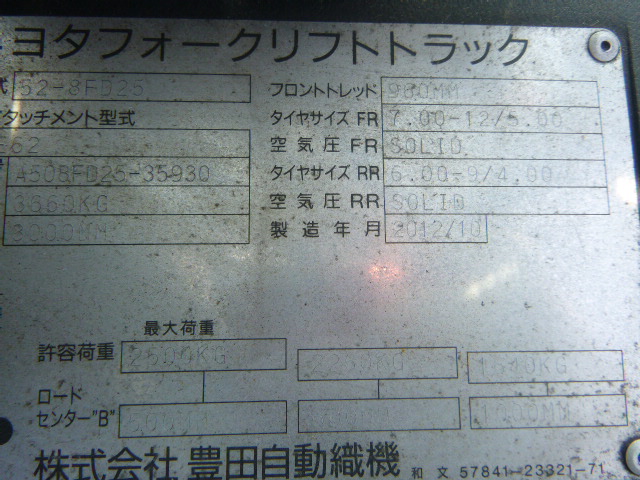 ヨタフォークリフトトラック
式 52-8FD25 フロントトレッド 980MM
タッチメント型式 タイヤサイズ FR 7.00-12/5.00
空気圧 FR SOLID
A508FD25-35930 タイヤサイズ RR 6.00-9/4.00
3660KG 空気圧 RR SOLID
3000MM 製造年月 2012/10
最大荷重
許容荷重 2500KG
ロード
センター"B"
株式会社 豊田自動織機 和文 57841-23321-71